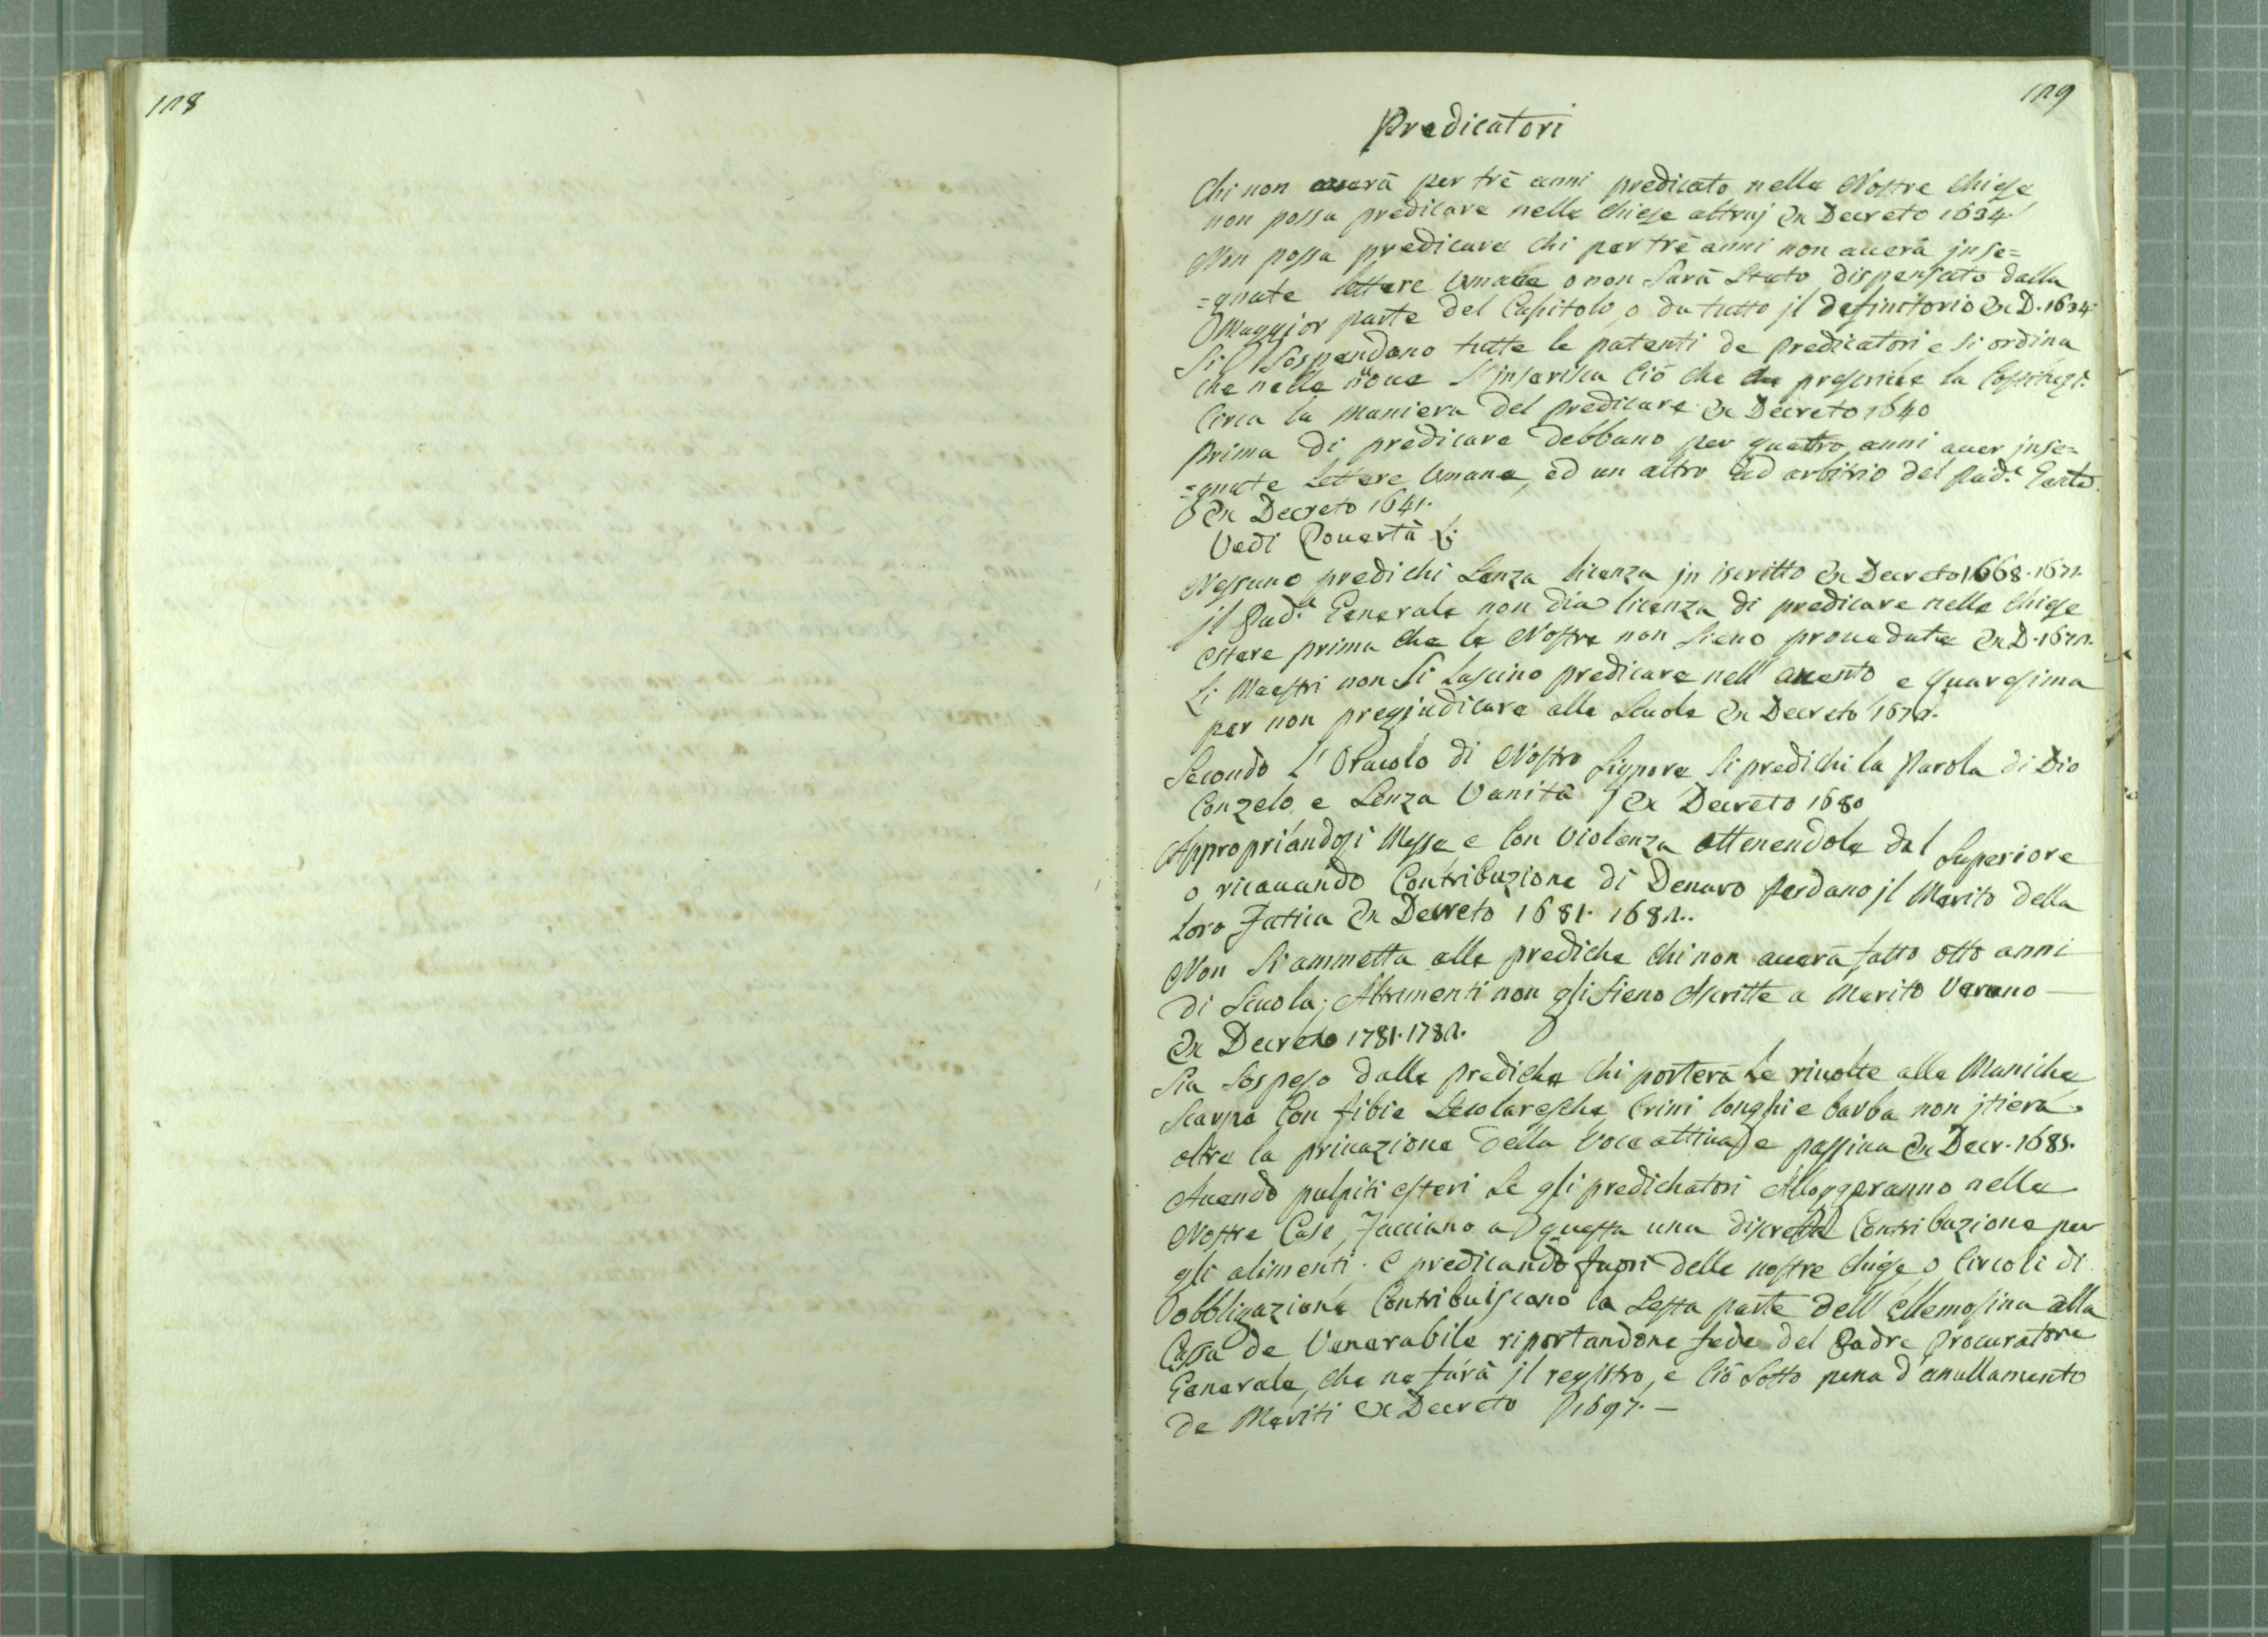 128
129
Predicatori
Chi non auerà per trè anni predicato nelle Nostre Chiese
non possa predicare nelle Chiese altruj Ex Decreto 1634.
Non possa predicare chi per trè anni non auerà jnse=
=gnate lettere Umane o non sarà stato dispensato dalla
Maggior parte del Capitolo, o da tutto jl definitorio Ex D. 1634.
Si sospendano tutte le patenti de predicatori e si ordina
che nelle noue s'jnserisca ciò che prescriue la Costituz.e
Circa la maniera del predicare Ex Decreto 1640
Prima di predicare debbano per quattro anni auer jnse=
=gnate Lettere Umane, ed un altro ad arbitrio del Pad.e
Ex Decreto 1641.
Vedi Pouertà L:
Nessuno predichi senza licenza jn iscritto Ex Decreto 1668. 1672.
jl Pad.e Generale non dia licenza di predicare nelle Chiese
estere prima che le Nostre non sieno prouedute Ex D. 1672.
Li Maestri non si lascino predicare nell' auento e quaresima
per non pregiudicare alle Scuole Ex Decreto 1672.
Secondo l'Oracolo di Nostro Signore si predichi la Parola di Dio
Con zelo, e senza Vanità Ex Decreto 1680
Appropriandosi Messe e con violenza ottenendole dal Superiore
o ricauando Contribuzione di Denaro perdano jl Merito della
loro Fatica Ex Decreto 1681. 1682.
Non si ammetta alle prediche chi non auerà fatto otto anni
di Scuola; Altrimenti non gli sieno Ascritte a Merito Veruno —
Ex Decreto 1781. 1782.
Sia sospeso dalle prediche chi porterà le riuolte alle Maniche
Scarpe con fibie Secolaresche Crini longhi e barba non jtiera
oltre la priuazione della Voce attiua e passiua Ex Decr. 1685.
Auendo pulpiti esteri se gli predichatori Alloggeranno nelle
Nostre Case, Facciano a questa una discreta Contribuzione per
gli alimenti. e predicando fuori delle nostre chiese o Circoli di
obbligazione Contribuiscano la sesta parte dell' ellemosina alla
Cassa de Venerabile riportandone fede del Padre Procuratore
Generale, che ne farà jl registro, e ciò sotto pena d'anullamento
de Meriti Ex Decreto 1697. —